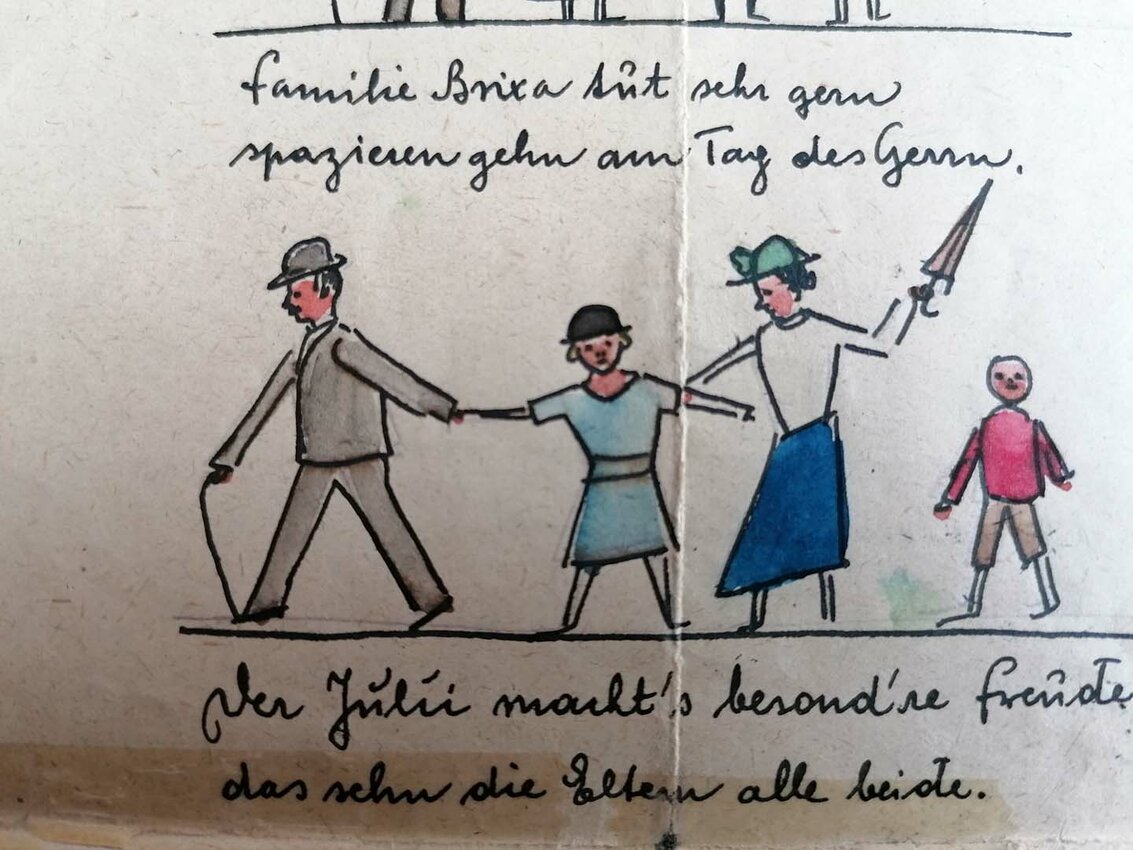 Familie Brixa tūt sehr gern
spazieren gehn am Tag des Herrn.
Der Jūlii macht's besond're Freūde
das sehn die Eltern alle beide.